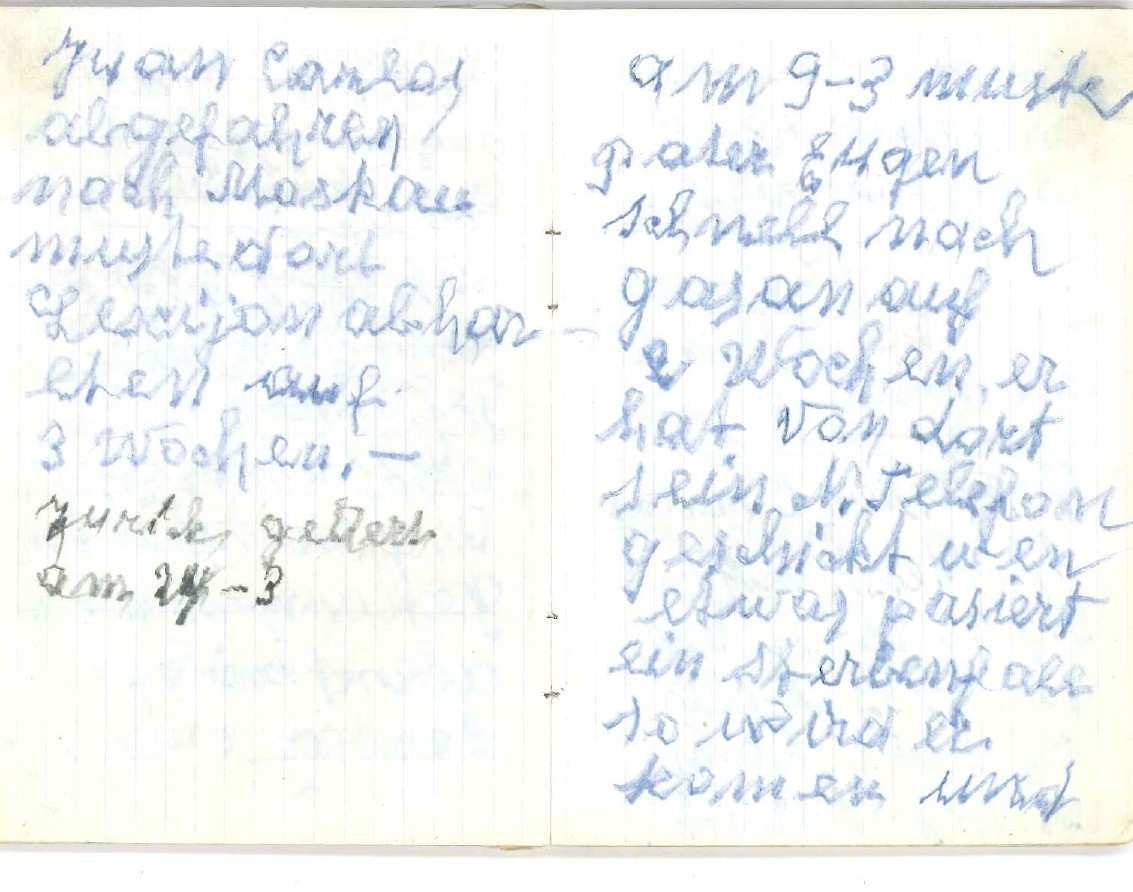 Juan Carlos
abgefahren
nach Moskau
muste dort
Lexijon abhar
lten auf
3 Wochen. –
zurik gekert
am 24-3
am 9-3 muste
pater Eugen
schnell nach
gasan auf
2 Wochen, er
hat von dort
sein N. Telefon
geschickt wen
etwas pasiert
ein sterbenfale
so wird er
komen und